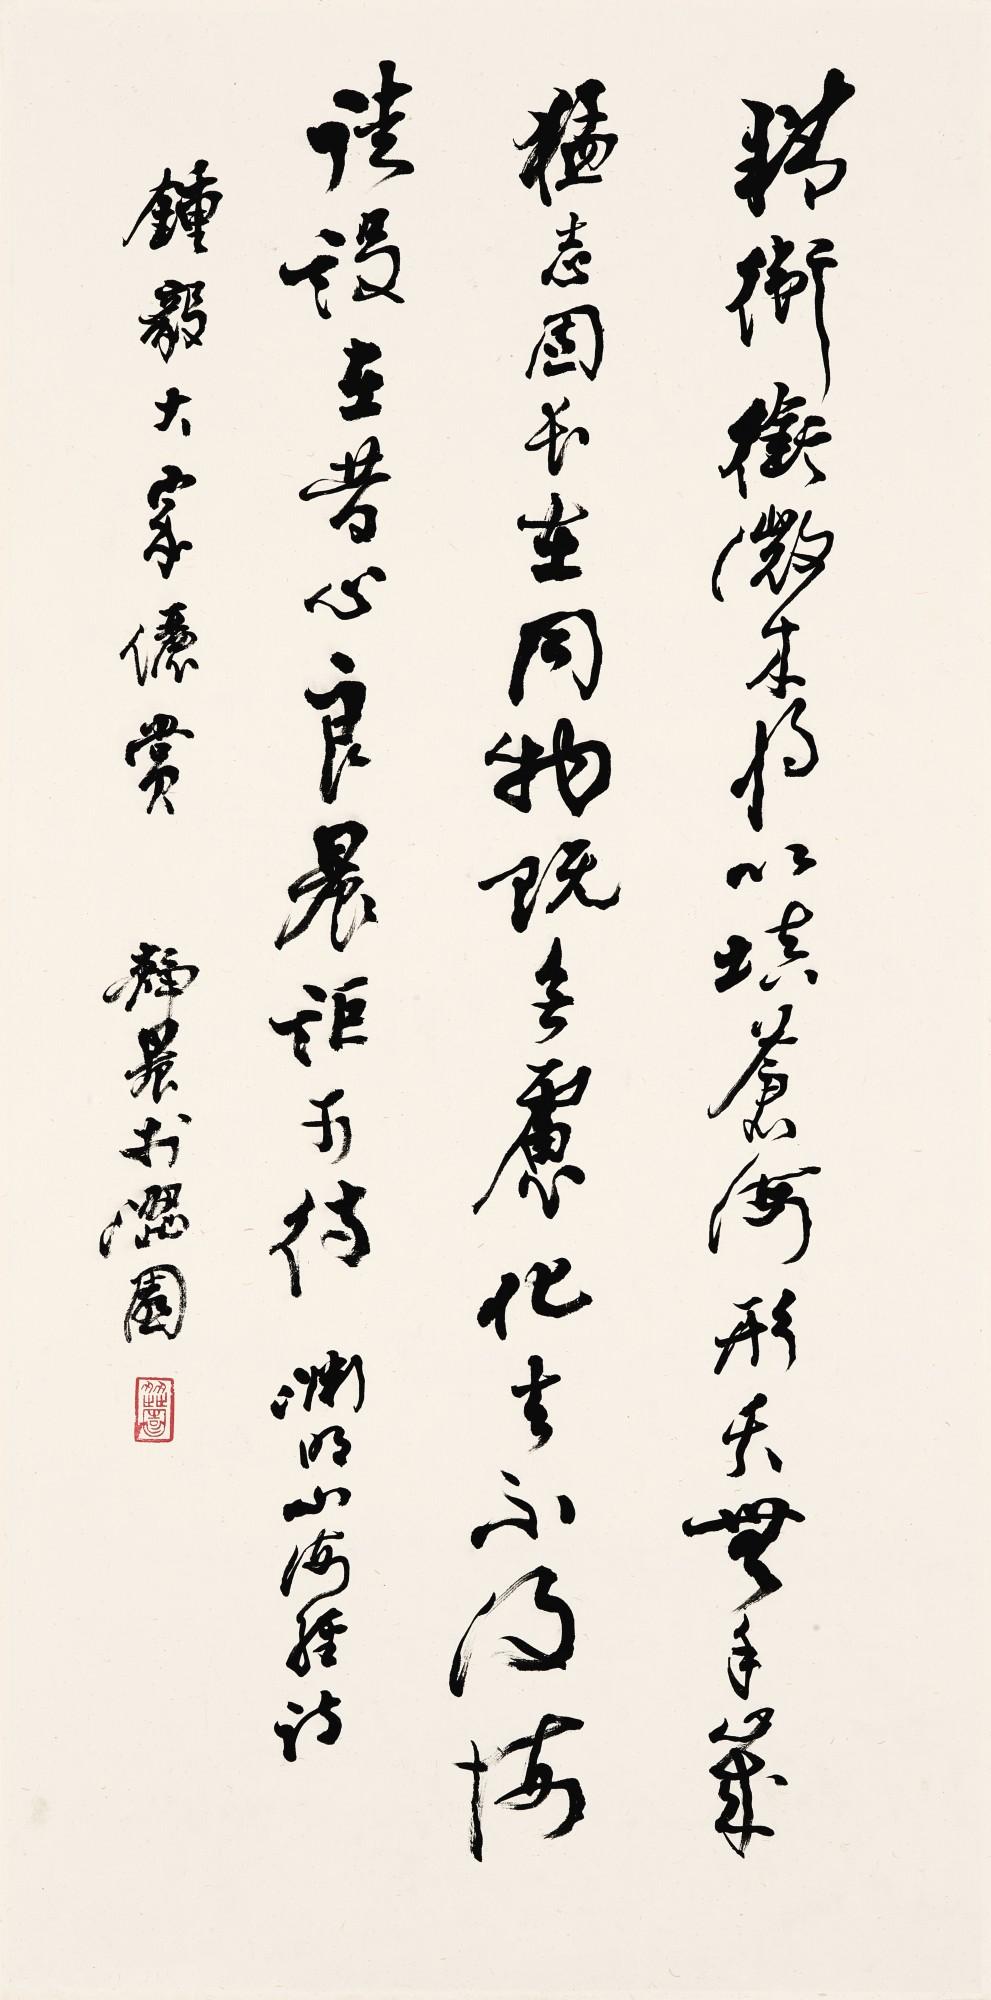 精衛銜微木將以填蒼海形夭無千歲
猛志固長在同物既無慮化去不復悔
徒設在昔心良晨詎可待 淵明山海經詩
鍾毅大家儷賞 靜晨於澀園